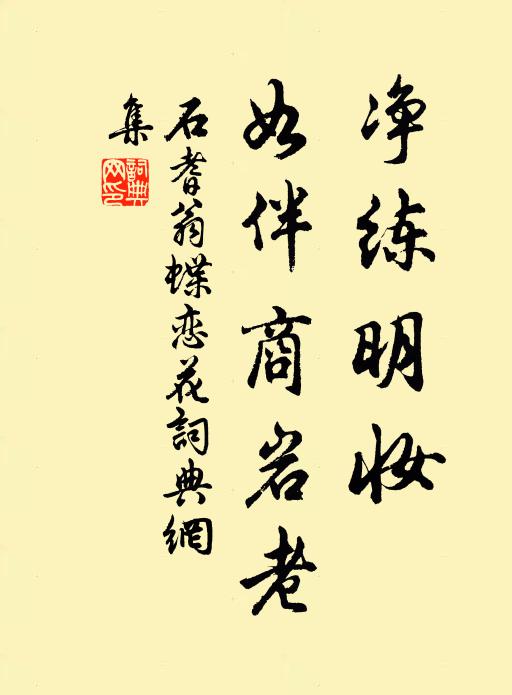 净练明妆
如伴商岩老
石耆翁蝶恋花詞典網
集
詞典網印